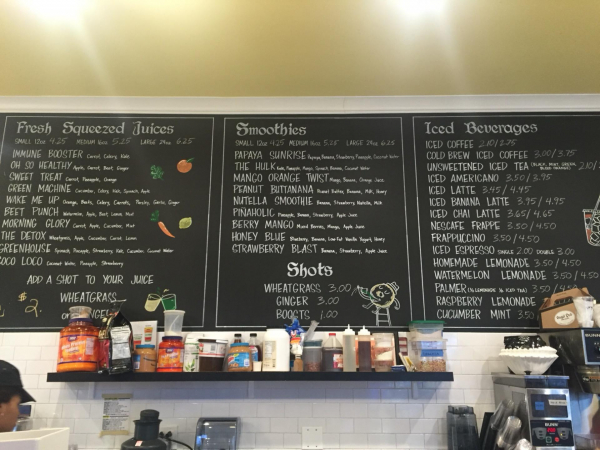 Fresh Squeezed Juices
SMALL 12oz 4.25 MEDIUM 16oz 5.25 LARGE 24oz 6.25
IMMUNE BOOSTER Carrot, Celery, Kale
OH SO HEALTHY Apple, Carrot, Beet, Ginger
SWEET TREAT Carrot, Pineapple, Orange
GREEN MACHINE Cucumber, Celery, Kale, Spinach, Apple
WAKE ME UP Orange, Beets, Celery, Carrots, Parsley, Garlic, Ginger
BEET PUNCH Watermelon, Apple, Beet, Lemon, Mint
MORNING GLORY Carrot, Apple, Cucumber, Mint
THE DETOX Wheatgrass, Apple, Cucumber, Carrot, Lemon
GREENHOUSE Spinach, Pineapple, Strawberry, Kale, Cucumber, Coconut Water
COCO LOCO Coconut Water, Pineapple, Strawberry
ADD A SHOT TO YOUR JUICE
$2.
WHEATGRASS
or
Smoothies
SMALL 12oz 4.25 MEDIUM 16oz 5.25 LARGE 24oz 6.25
PAPAYA SUNRISE Papaya, Banana, Strawberry, Pineapple, Coconut Water
THE HULK Kale, Pineapple, Mango, Spinach, Banana, Coconut Water
MANGO ORANGE TWIST Mango, Banana, Orange Juice
PEANUT BUTTANANA Peanut Butter, Banana, Milk, Honey
NUTELLA SMOOTHIE Banana, Strawberry, Nutella, Milk
PIÑAHOLIC Pineapple, Banana, Strawberry, Apple Juice
BERRY MANGO Mixed Berries, Mango, Apple Juice
HONEY BLUE Blueberry, Banana, Low-Fat Vanilla Yogurt, Honey
STRAWBERRY BLAST Banana, Strawberry, Apple Juice
Shots
WHEATGRASS 3.00
GINGER 3.00
BOOSTS 1.00
Iced Beverages
ICED COFFEE 2.10/2.75
COLD BREW ICED COFFEE 3.00/3.75
UNSWEETENED ICED TEA 2.10/2.75
ICED AMERICANO 3.50/3.95
ICED LATTE 3.95/4.95
ICED BANANA LATTE 3.95/4.95
ICED CHAI LATTE 3.65/4.65
NESCAFE FRAPPE 3.50/4.50
FRAPPUCCINO 3.50/4.50
ICED ESPRESSO SINGLE 2.00 DOUBLE 3.00
HOMEMADE LEMONADE 3.50/4.50
WATERMELON LEMONADE 3.50/4.50
PALMER (½ LEMONADE ½ ICED TEA) 3.50/4.50
RASPBERRY LEMONADE 3.50
CUCUMBER MINT 3.50
BUNN
BUNN